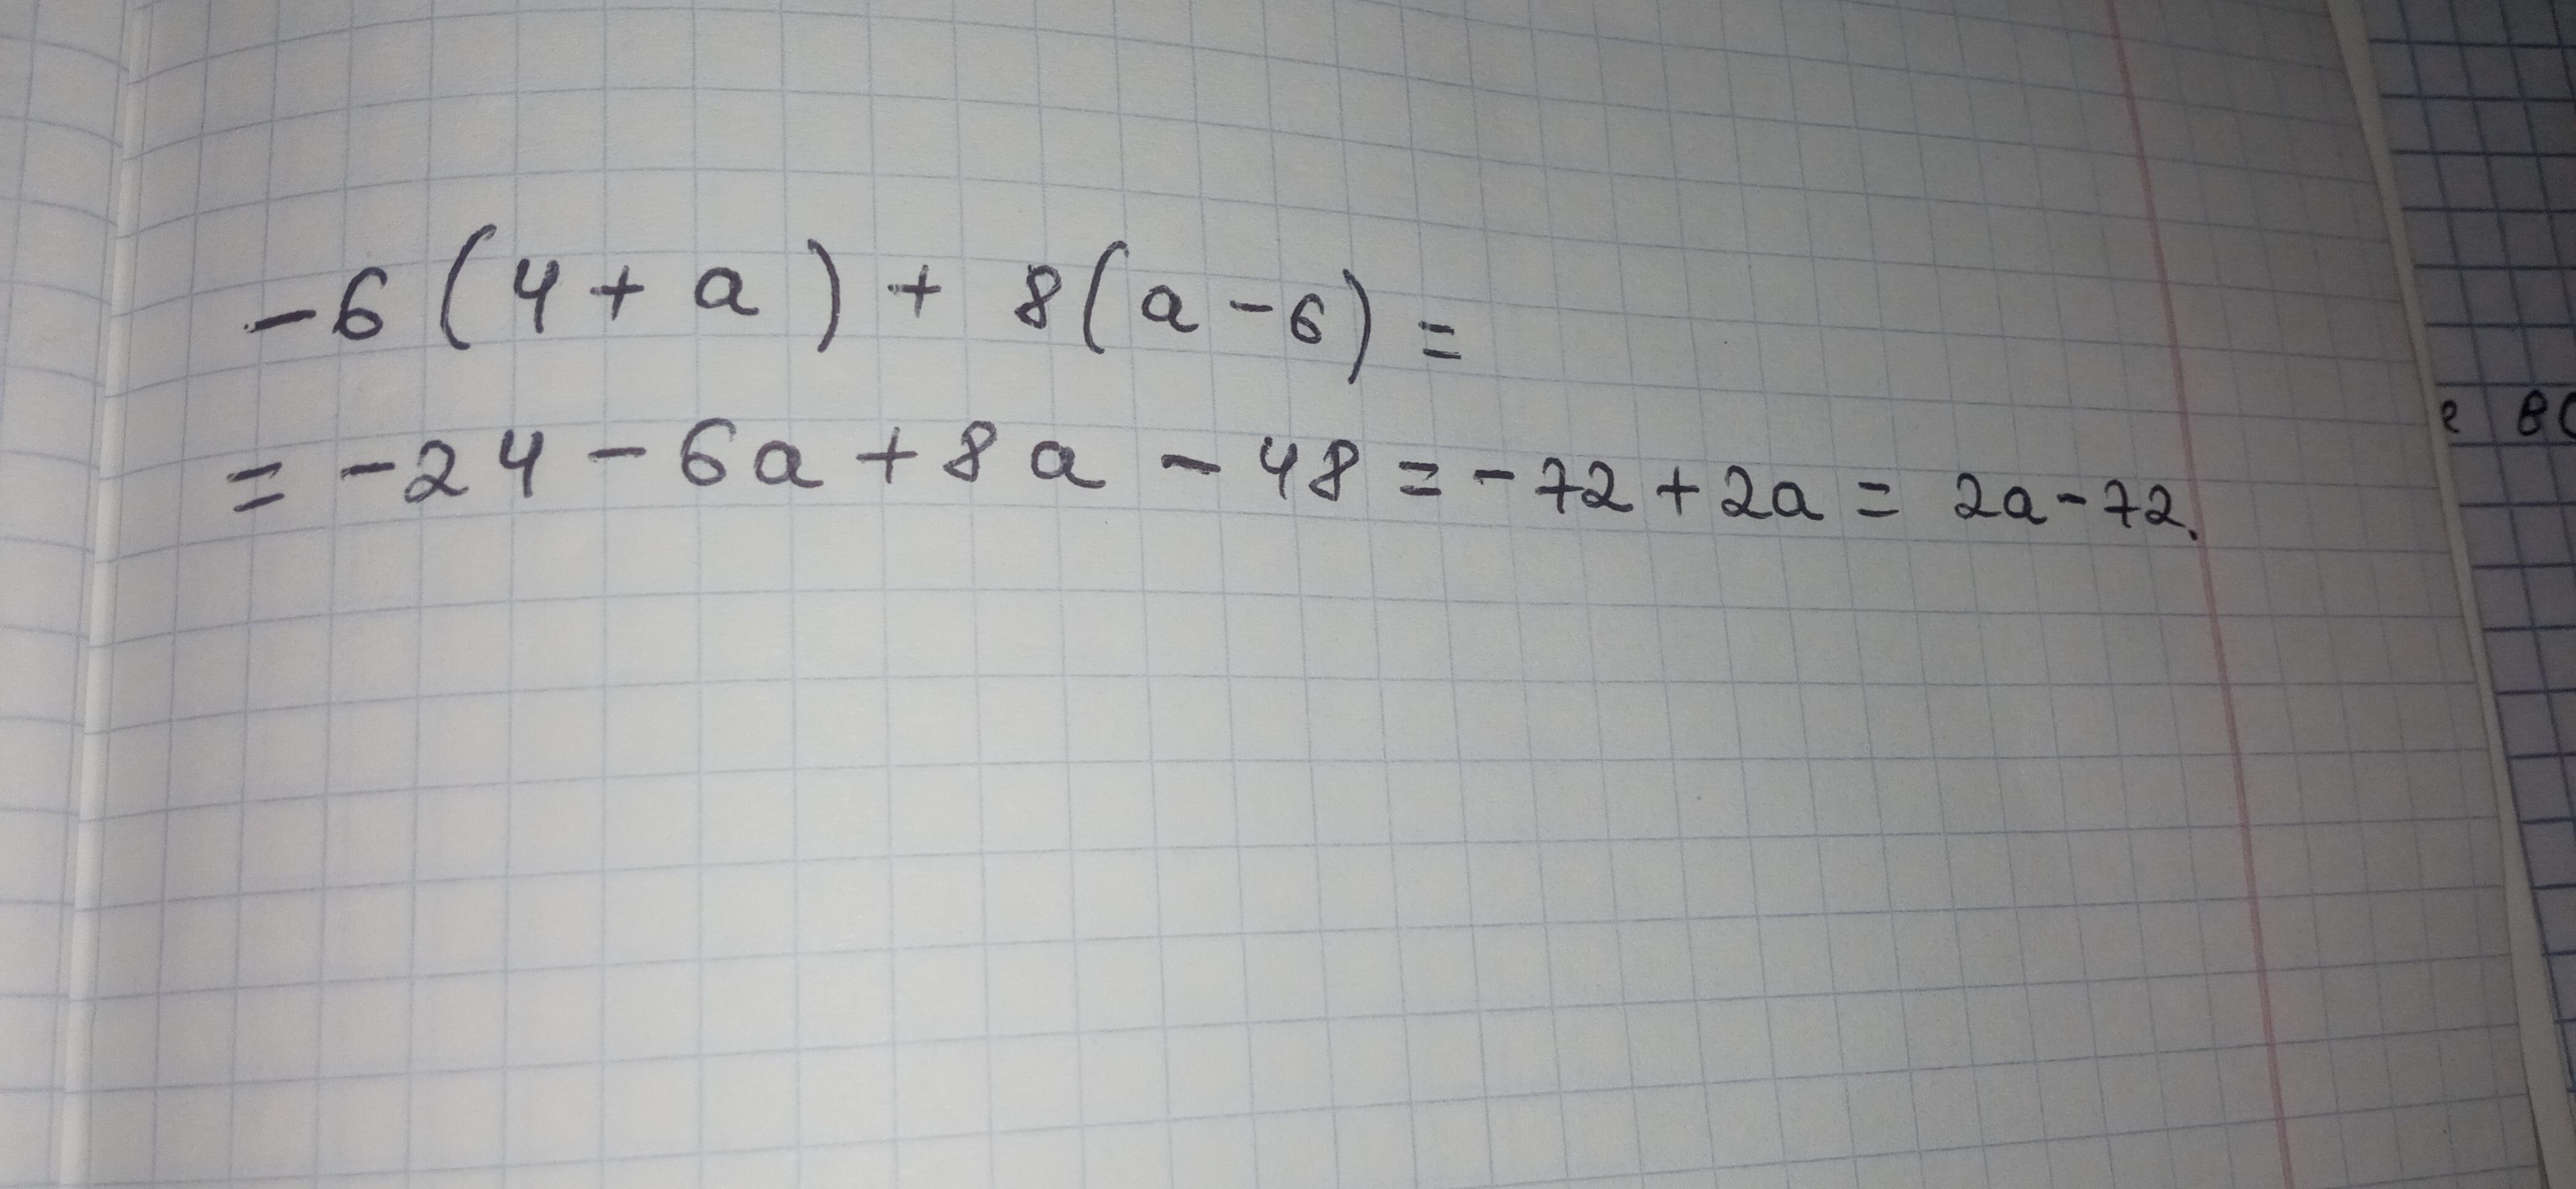 -6(4+a)+8(a-6)=
=-24-6a+8a-48=-72+2a=2a-72.